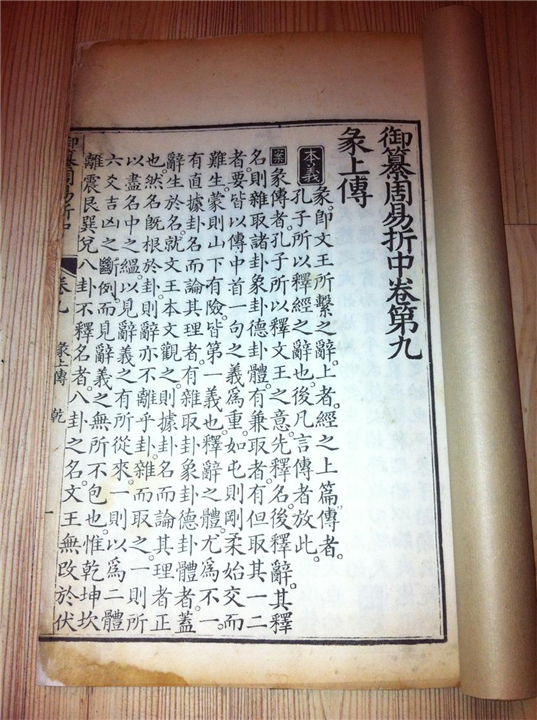 御纂周易折中卷第九
彖上傳
本義彖即文王所繫之辭。上者。經之上篇。傳者。
孔子所以釋經之辭也。後凡言傳者放此。
案彖傳者。孔子所以釋文王之意。先釋名。後釋辭。其釋
名則雜取諸卦象卦德卦體。有兼取者。有但取其一二
者。要皆以傳中首一句之義爲重。如屯則剛柔始交而
難生。蒙則山下有險。皆第一義也。釋辭之體。尤爲不一。
有直據卦名而論其理者。有雜取卦象卦德卦體者。蓋
辭生於名。就文王本文觀之。則據卦名而論其理者正
也。然名既根於卦。則辭亦不離乎卦。雜而取之。一則所
以盡名中之縕。以見辭義之有所從來。一則以爲二體
六爻吉凶之斷例。而見辭義之無所不包也。惟乾坤坎
離震艮巽兌八卦不釋名者。八卦之名。文王無改於伏
御纂周易折中 卷九 彖上傳 乾